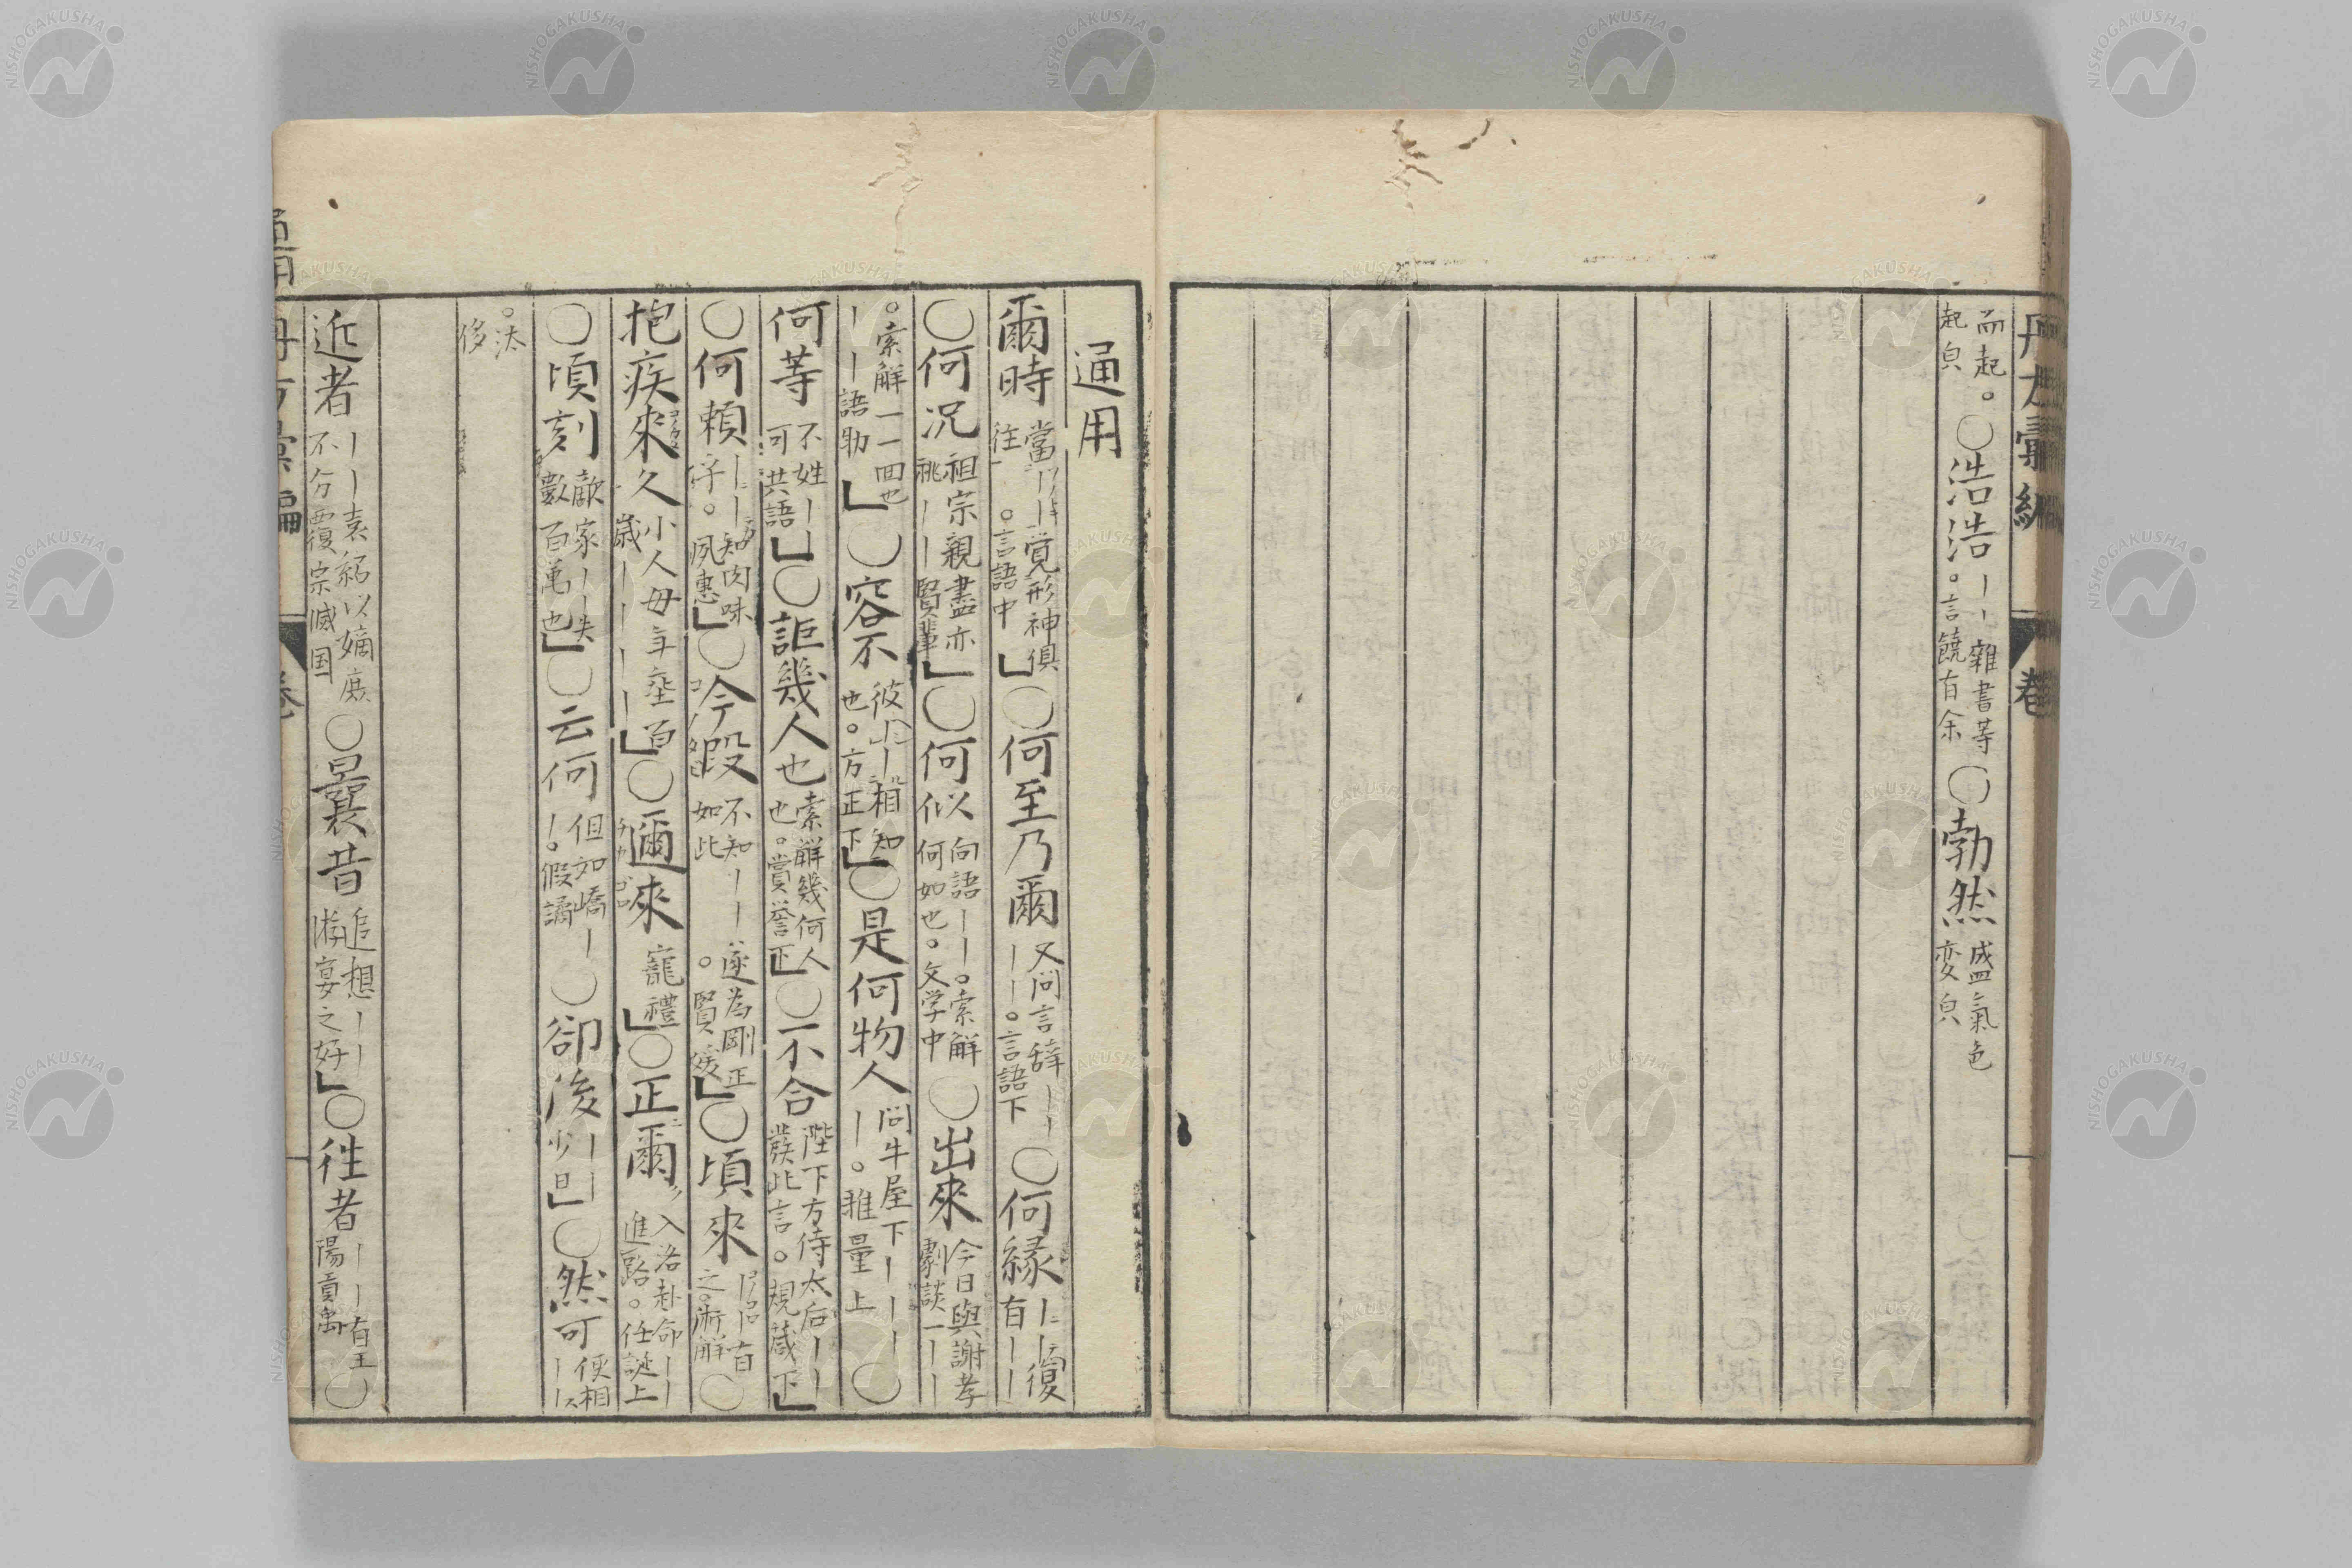 而起。○浩浩｜｜雜書等。言饒有余○勃然盛氣色変皃
起皃
通用
爾時當｜｜覚形神俱往｜。言語中」○何至乃爾又問言辞｜｜｜｜。言語下○何縁｜｜復有｜｜
○何况祖宗親盡亦祧｜｜｜賢輩」○何似向語｜｜。索解何如也。文学中○出來今日與謝孝劇談一｜｜
。索解一一回也｜｜｜語助」○容不彼｜｜相知也。方正下」○是何物人問牛屋下｜｜｜｜。雅量上○
何等不姓｜｜可共語」○詎幾人也索解幾何人也。賞誉下」○不合陛下方侍太后｜｜發此言。規葴下」
○何賴｜｜知肉味仔。夙惠」○今叚不知｜｜遂為剛正如此。賢媛」○頃來｜｜有之。術解○
抱疾來久小人母年垂百歳｜｜｜｜」○邇來寵禮」○正爾入洛赴命｜｜進路。任誕上
○頃刻歔家｜｜失數百萬也」○云何但如嶠｜｜。假譎○卻後｜｜少旦」○然可便相｜｜
。汰侈
近者｜｜袁紹以嫡庶不分覆宗滅国○曩昔追想｜｜游宴之好」○徃者｜｜有王陽貢禹○